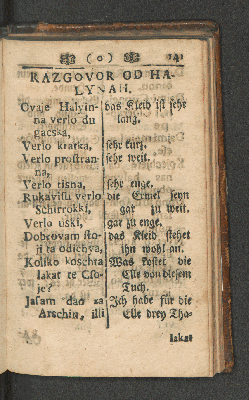 ( 0 ) 141
RAZGOVOR OD HA-
LYNAH.
Ovaje Halyin- das Kleid ist sehr
na verlo du lang.
gacska,
Verlo kratka, sehr kurz.
Verlo prostran- sehr weit.
na,
Verlo tisna, sehr enge.
Rukavisu verlo die Ermel seyn
Schirrokki, gar zu weit.
Verlo uski, gar zu enge.
Dobrovam sto- das Kleid stehet
ji ta odichya, ihn wohl an.
Koliko koschta Was kostet die
lakat te Cso- Elle von diesem
je? Tuch.
Jasam dao za Ich habe für die
Arschin, illi Elle drey Tha-
lakat